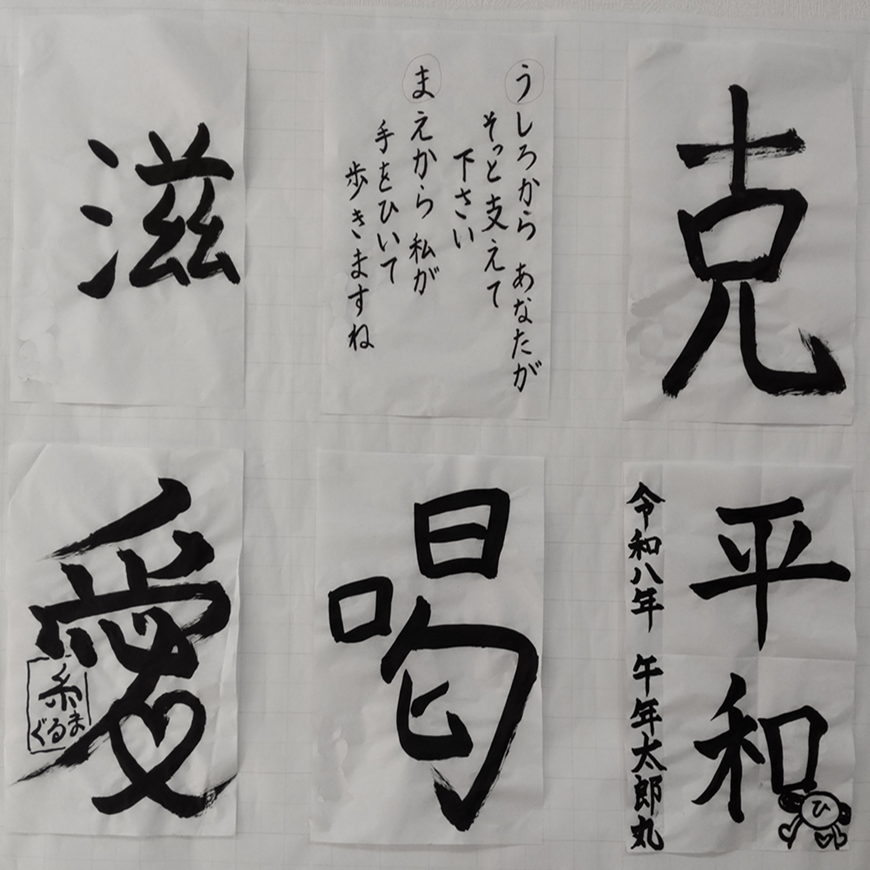 克
うしろから あなたが
そっと支えて
下さい
まえから 私が
手をひいて
歩きますね
滋
平和
令和八年 午年太郎丸
ひ
喝
愛
糸
ぐるま